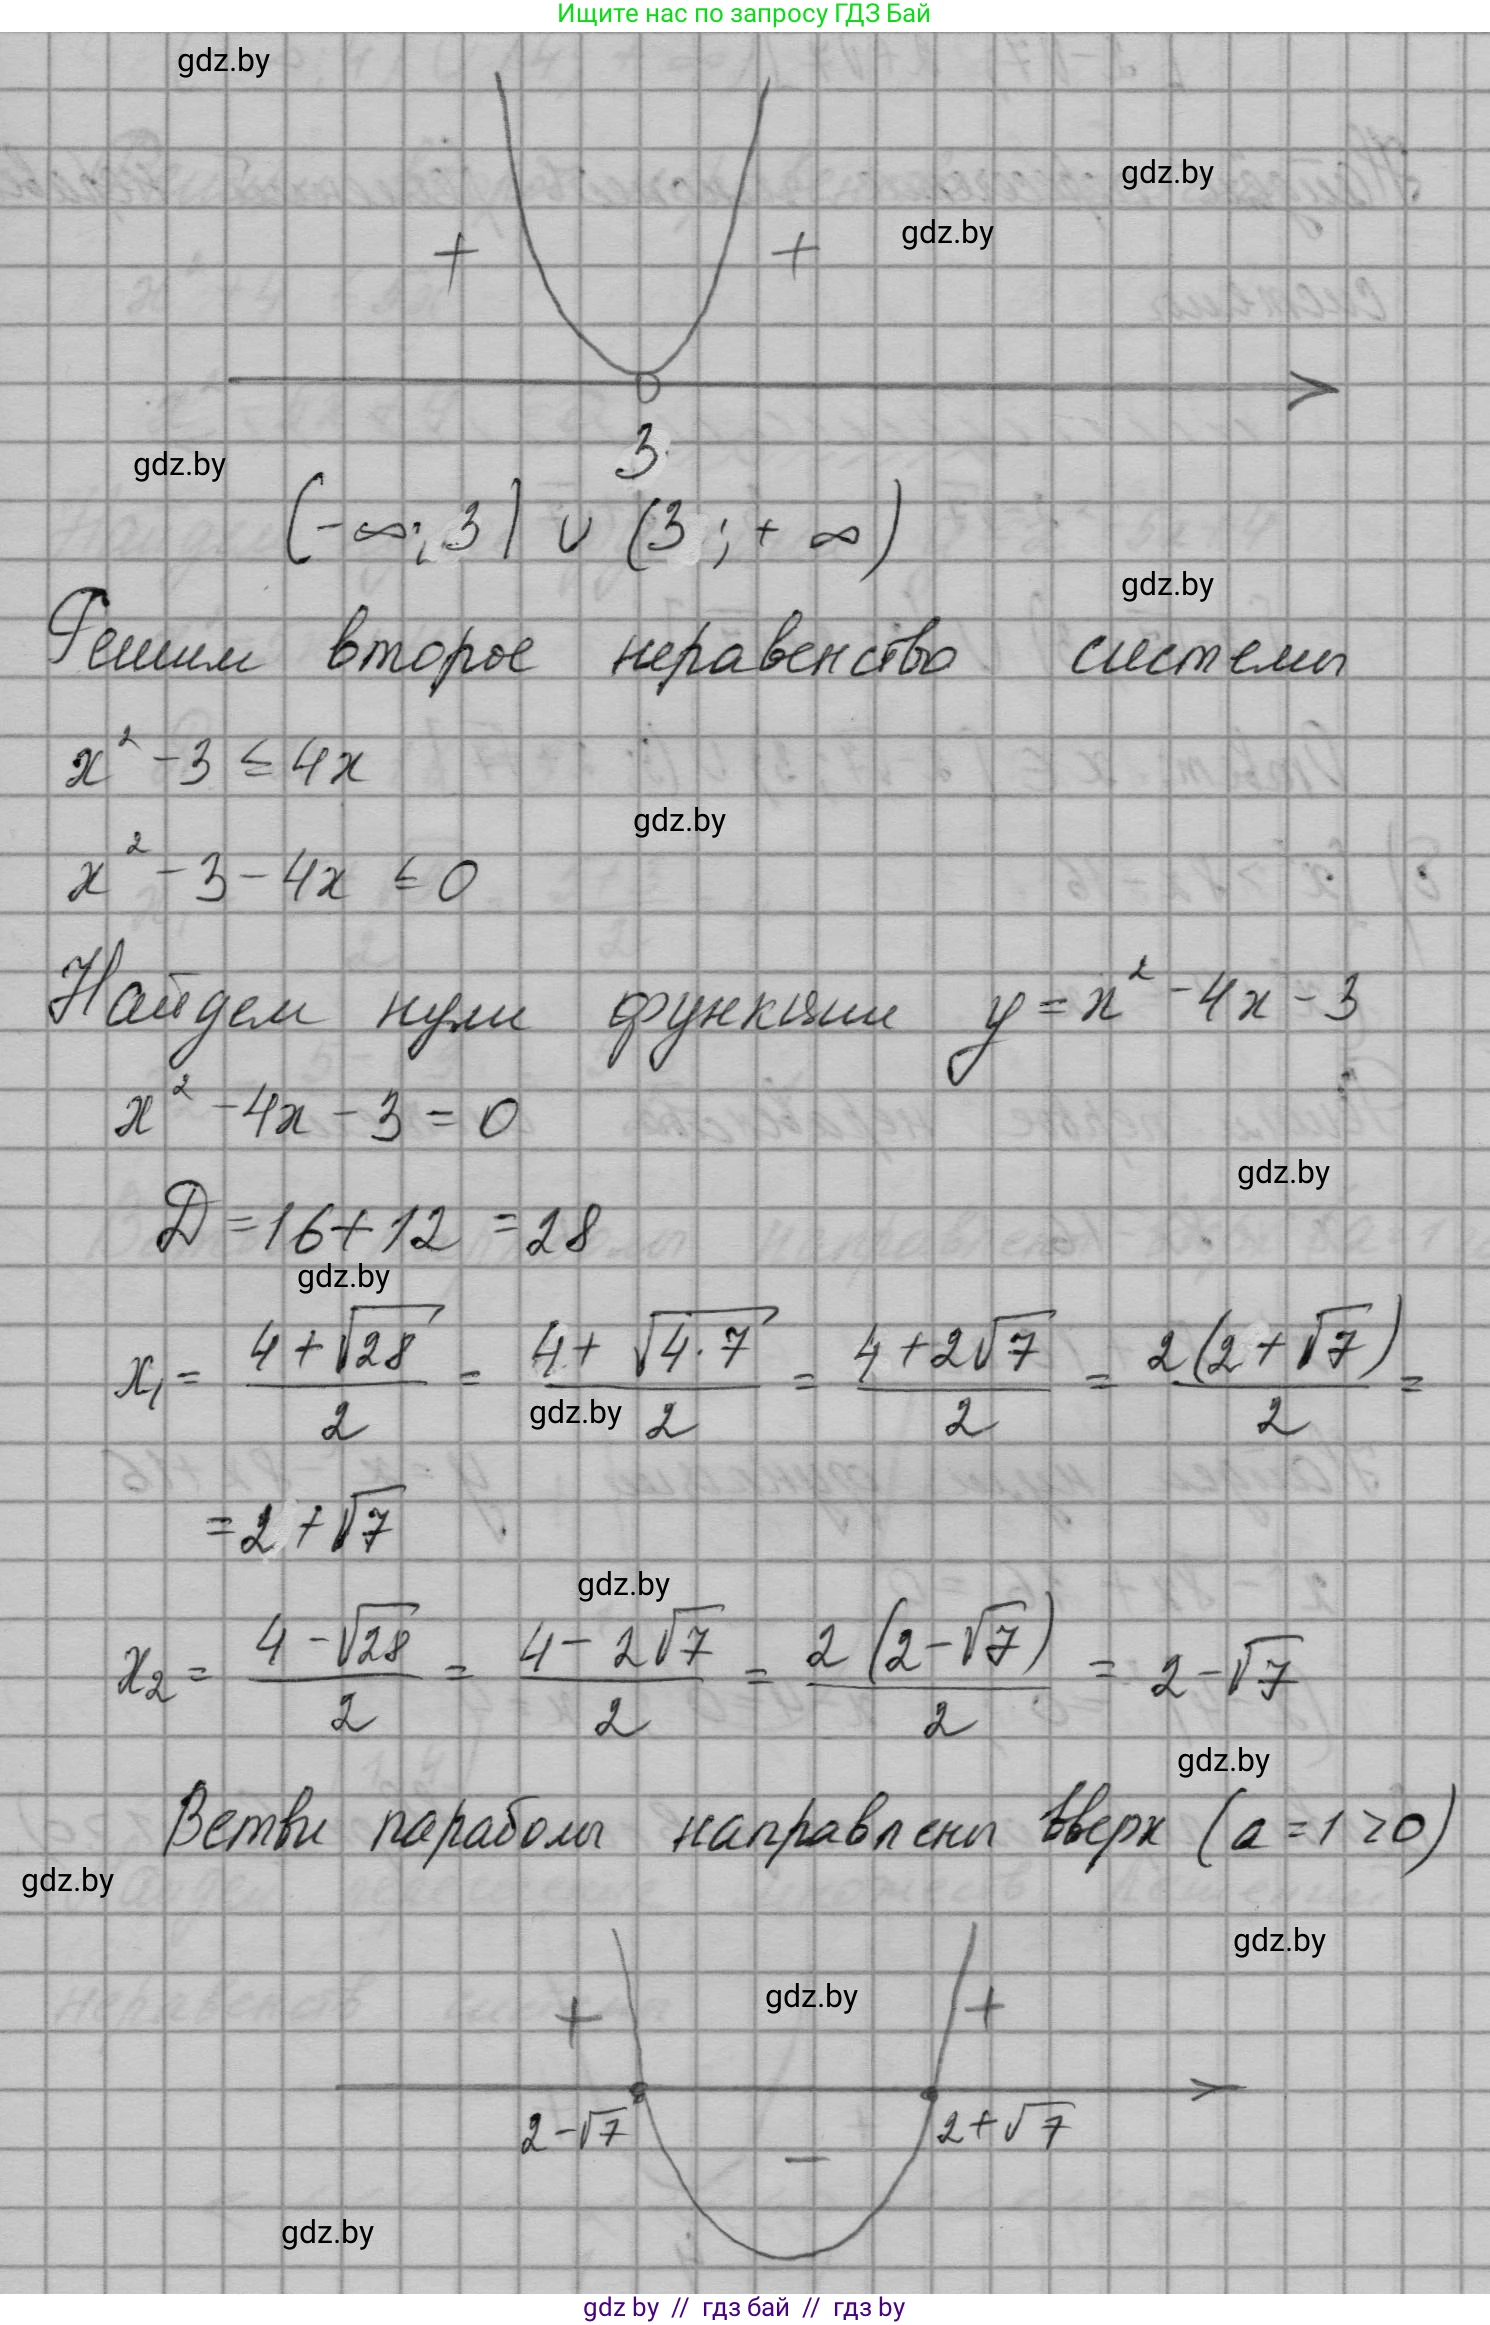 Ищите нас по запросу ГДЗ Бай
gdz.by
gdz.by
gdz.by
+ +
3
gdz.by
(-∞; 3) ∪ (3; +∞)
gdz.by
Решим второе неравенство системы
x² - 3 ≤ 4x
gdz.by
x² - 3 - 4x ≤ 0
Найдем нули функции y = x² - 4x - 3
x² - 4x - 3 = 0
gdz.by
D = 16 + 12 = 28
gdz.by
x₁ = (4 + √28)/2 = (4 + √(4·7))/2 = (4 + 2√7)/2 = (2(2 + √7))/2 =
gdz.by
= 2 + √7
gdz.by
x₂ = (4 - √28)/2 = (4 - 2√7)/2 = (2(2 - √7))/2 = 2 - √7
gdz.by
Ветви параболы направлены вверх (a = 1 > 0)
gdz.by
gdz.by
gdz.by
+ +
2 - √7 2 + √7
-
gdz.by
gdz by // гдз бай // гдз by